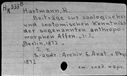 Hartmann, R.
Beiträge zur zoologischen
und zootomischen Kenntniss
der sogenannten anthropo-
morphen Affen, 1:
Berlin, 1872.
S.-abdr. Archiv f. Anat. u. Phys.
1872